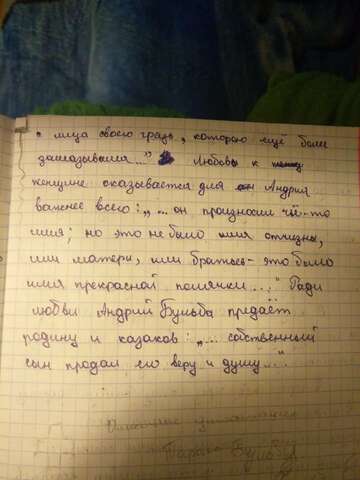 с лица своего грязь, которою ещё более
замазывала..." Любовь к
женщине оказывается для Андрия
важнее всего: „... он произносил чьё-то
имя; но это не было имя отчизны,
или матери, или братьев - это было
имя прекрасной полячки..." Ради
любви Андрий Бульба предаёт
родину и казаков: „... собственный
сын продал его веру и душу..."
Тараса Бульбы